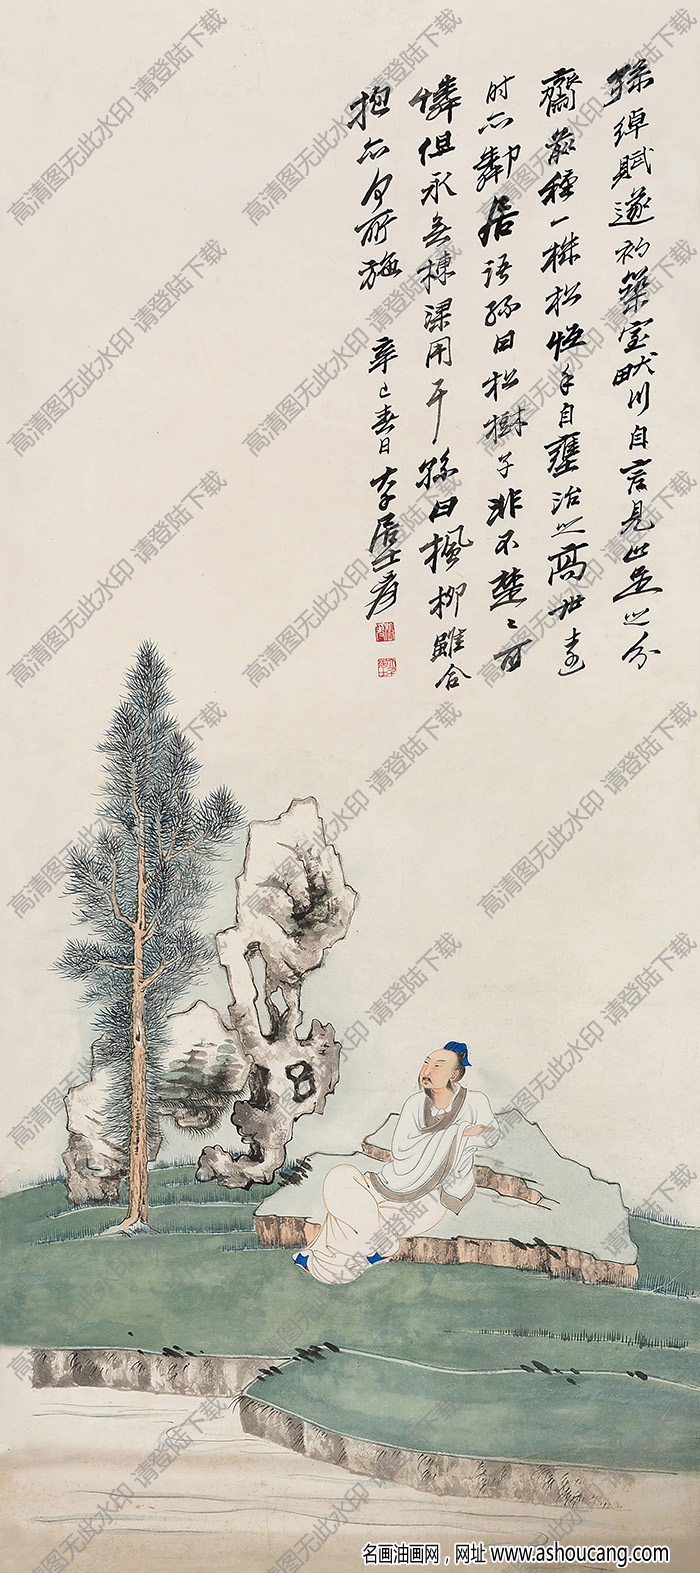 孫綽賦遂初築室畎川自言見止足之分
齋前種一株松恆手自壅治之高世遠
时亦鄰居語孫曰松樹子非不楚〻可
憐但永無棟梁用耳孫曰楓柳雖合
抱亦何所施 辛巳春日 大千居士爰
高清图无此水印 请登陆下载
名画油画网，网址 www.ashoucang.com